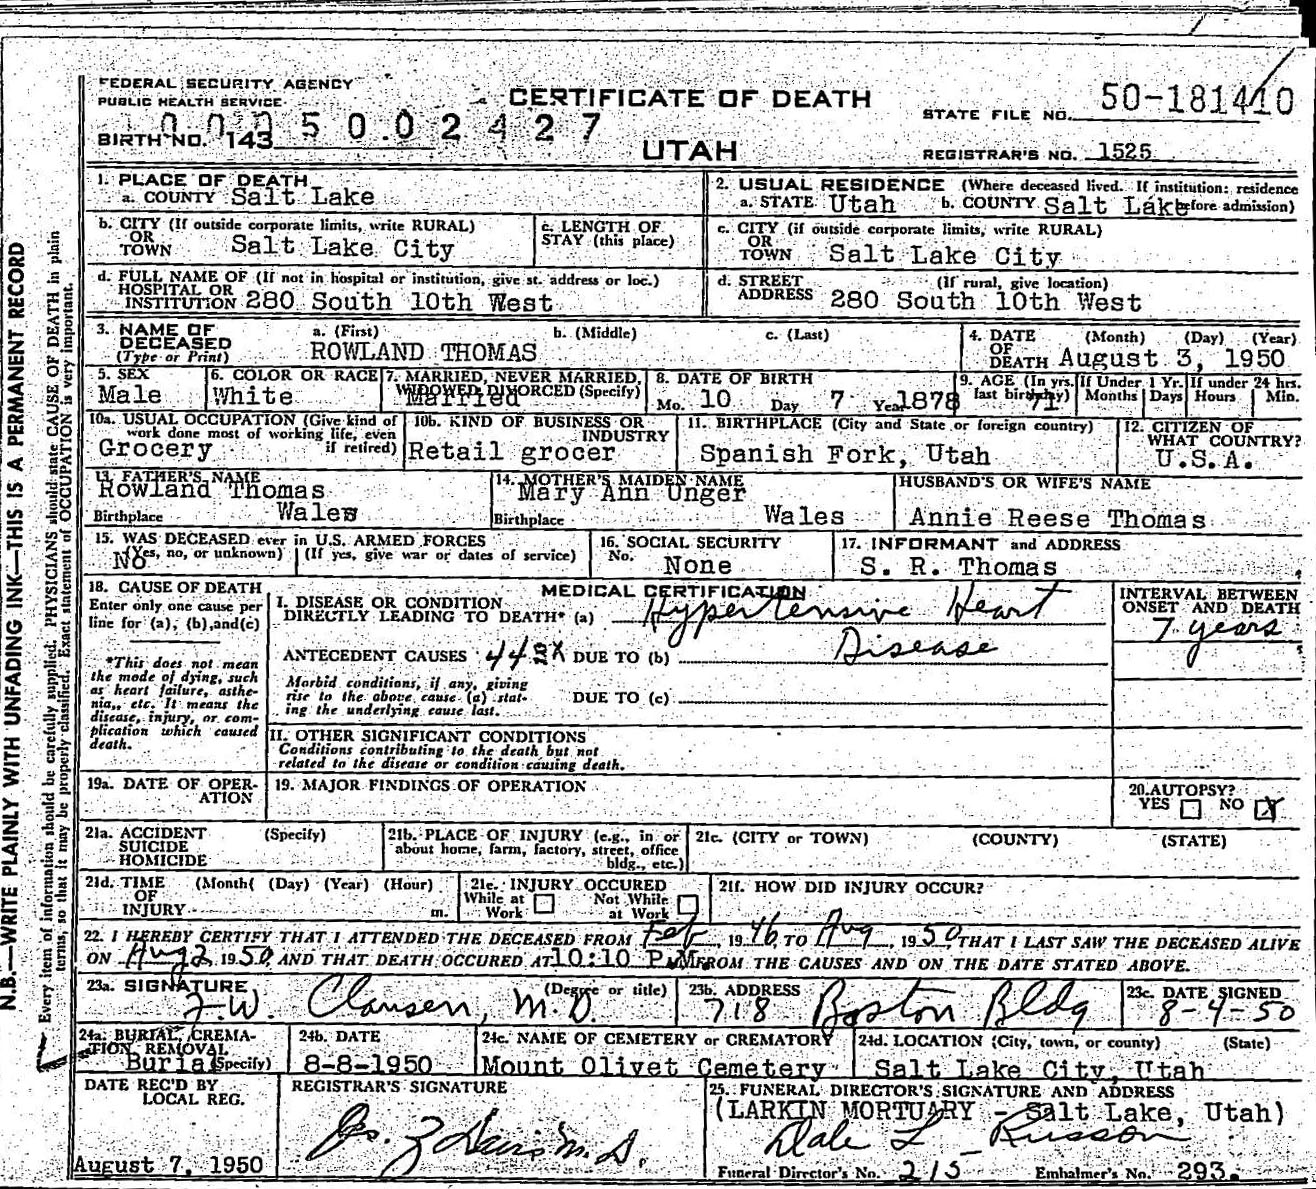 FEDERAL SECURITY AGENCY
PUBLIC HEALTH SERVICE
CERTIFICATE OF DEATH
STATE FILE NO. 50-181410
50.02427
BIRTH NO. 143
UTAH
REGISTRAR'S NO. 1525
1. PLACE OF DEATH
a. COUNTY Salt Lake
2. USUAL RESIDENCE (Where deceased lived. If institution: residence before admission)
a. STATE Utah b. COUNTY Salt Lake
b. CITY (If outside corporate limits, write RURAL)
OR
TOWN Salt Lake City
c. LENGTH OF
STAY (this place)
c. CITY (if outside corporate limits, write RURAL)
OR
TOWN Salt Lake City
d. FULL NAME OF (If not in hospital or institution, give st. address or loc.)
HOSPITAL OR
INSTITUTION 280 South 10th West
d. STREET (If rural, give location)
ADDRESS 280 South 10th West
3. NAME OF
DECEASED
(Type or Print)
a. (First) b. (Middle) c. (Last)
ROWLAND THOMAS
4. DATE (Month) (Day) (Year)
OF
DEATH August 3, 1950
5. SEX
Male
6. COLOR OR RACE
White
7. MARRIED, NEVER MARRIED,
WIDOWED DIVORCED (Specify)
Married
8. DATE OF BIRTH
Mo. 10 Day 7 Year 1878
9. AGE (In yrs. last birthday) 71
If Under 1 Yr. Months Days
If under 24 hrs. Hours Min.
10a. USUAL OCCUPATION (Give kind of
work done most of working life, even
if retired)
Grocery
10b. KIND OF BUSINESS OR
INDUSTRY
Retail grocer
11. BIRTHPLACE (City and State or foreign country)
Spanish Fork, Utah
12. CITIZEN OF
WHAT COUNTRY?
U.S.A.
13. FATHER'S NAME
Rowland Thomas
Birthplace Wales
14. MOTHER'S MAIDEN NAME
Mary Ann Unger
Birthplace Wales
HUSBAND'S OR WIFE'S NAME
Annie Reese Thomas
15. WAS DECEASED ever in U.S. ARMED FORCES
(Yes, no, or unknown) (If yes, give war or dates of service)
No
16. SOCIAL SECURITY
No. None
17. INFORMANT and ADDRESS
S. R. Thomas
18. CAUSE OF DEATH
Enter only one cause per
line for (a), (b), and (c)
*This does not mean
the mode of dying, such
as heart failure, asthe-
nia, etc. It means the
disease, injury, or com-
plication which caused
death.
MEDICAL CERTIFICATION
I. DISEASE OR CONDITION
DIRECTLY LEADING TO DEATH* (a) Hypertensive Heart
ANTECEDENT CAUSES DUE TO (b) Disease
Morbid conditions, if any, giving
rise to the above cause (a) stat-
ing the underlying cause last.
DUE TO (c)
II. OTHER SIGNIFICANT CONDITIONS
Conditions contributing to the death but not
related to the disease or condition causing death.
INTERVAL BETWEEN
ONSET AND DEATH
7 years
19a. DATE OF OPER-
ATION
19. MAJOR FINDINGS OF OPERATION
20. AUTOPSY?
YES NO X
21a. ACCIDENT (Specify)
SUICIDE
HOMICIDE
21b. PLACE OF INJURY (e.g., in or
about home, farm, factory, street, office
bldg., etc.)
21c. (CITY or TOWN) (COUNTY) (STATE)
21d. TIME (Month( (Day) (Year) (Hour)
OF
INJURY m.
21e. INJURY OCCURED
While at Work Not While at Work
21f. HOW DID INJURY OCCUR?
22. I HEREBY CERTIFY THAT I ATTENDED THE DECEASED FROM Feb, 1946 TO Aug, 1950 THAT I LAST SAW THE DECEASED ALIVE
ON Aug 2 1950 AND THAT DEATH OCCURED AT 10:10 P.M. FROM THE CAUSES AND ON THE DATE STATED ABOVE.
23a. SIGNATURE (Degree or title)
F.W. Clausen, M.D.
23b. ADDRESS
718 Boston Bldg
23c. DATE SIGNED
8-4-50
24a. BURIAL, CREMA-
TION, REMOVAL
Burial (Specify)
24b. DATE
8-8-1950
24c. NAME OF CEMETERY or CREMATORY
Mount Olivet Cemetery
24d. LOCATION (City, town, or county) (State)
Salt Lake City, Utah
DATE REC'D BY
LOCAL REG.
August 7, 1950
REGISTRAR'S SIGNATURE
25. FUNERAL DIRECTOR'S SIGNATURE AND ADDRESS
(LARKIN MORTUARY - Salt Lake, Utah)
Dale L Russon
Funeral Director's No. 215 Embalmer's No. 293.
N.B.—WRITE PLAINLY WITH UNFADING INK—THIS IS A PERMANENT RECORD
Every item of information should be carefully supplied. PHYSICIANS should state CAUSE OF DEATH in plain
terms, so that it may be properly classified. Exact statement of OCCUPATION is very important.